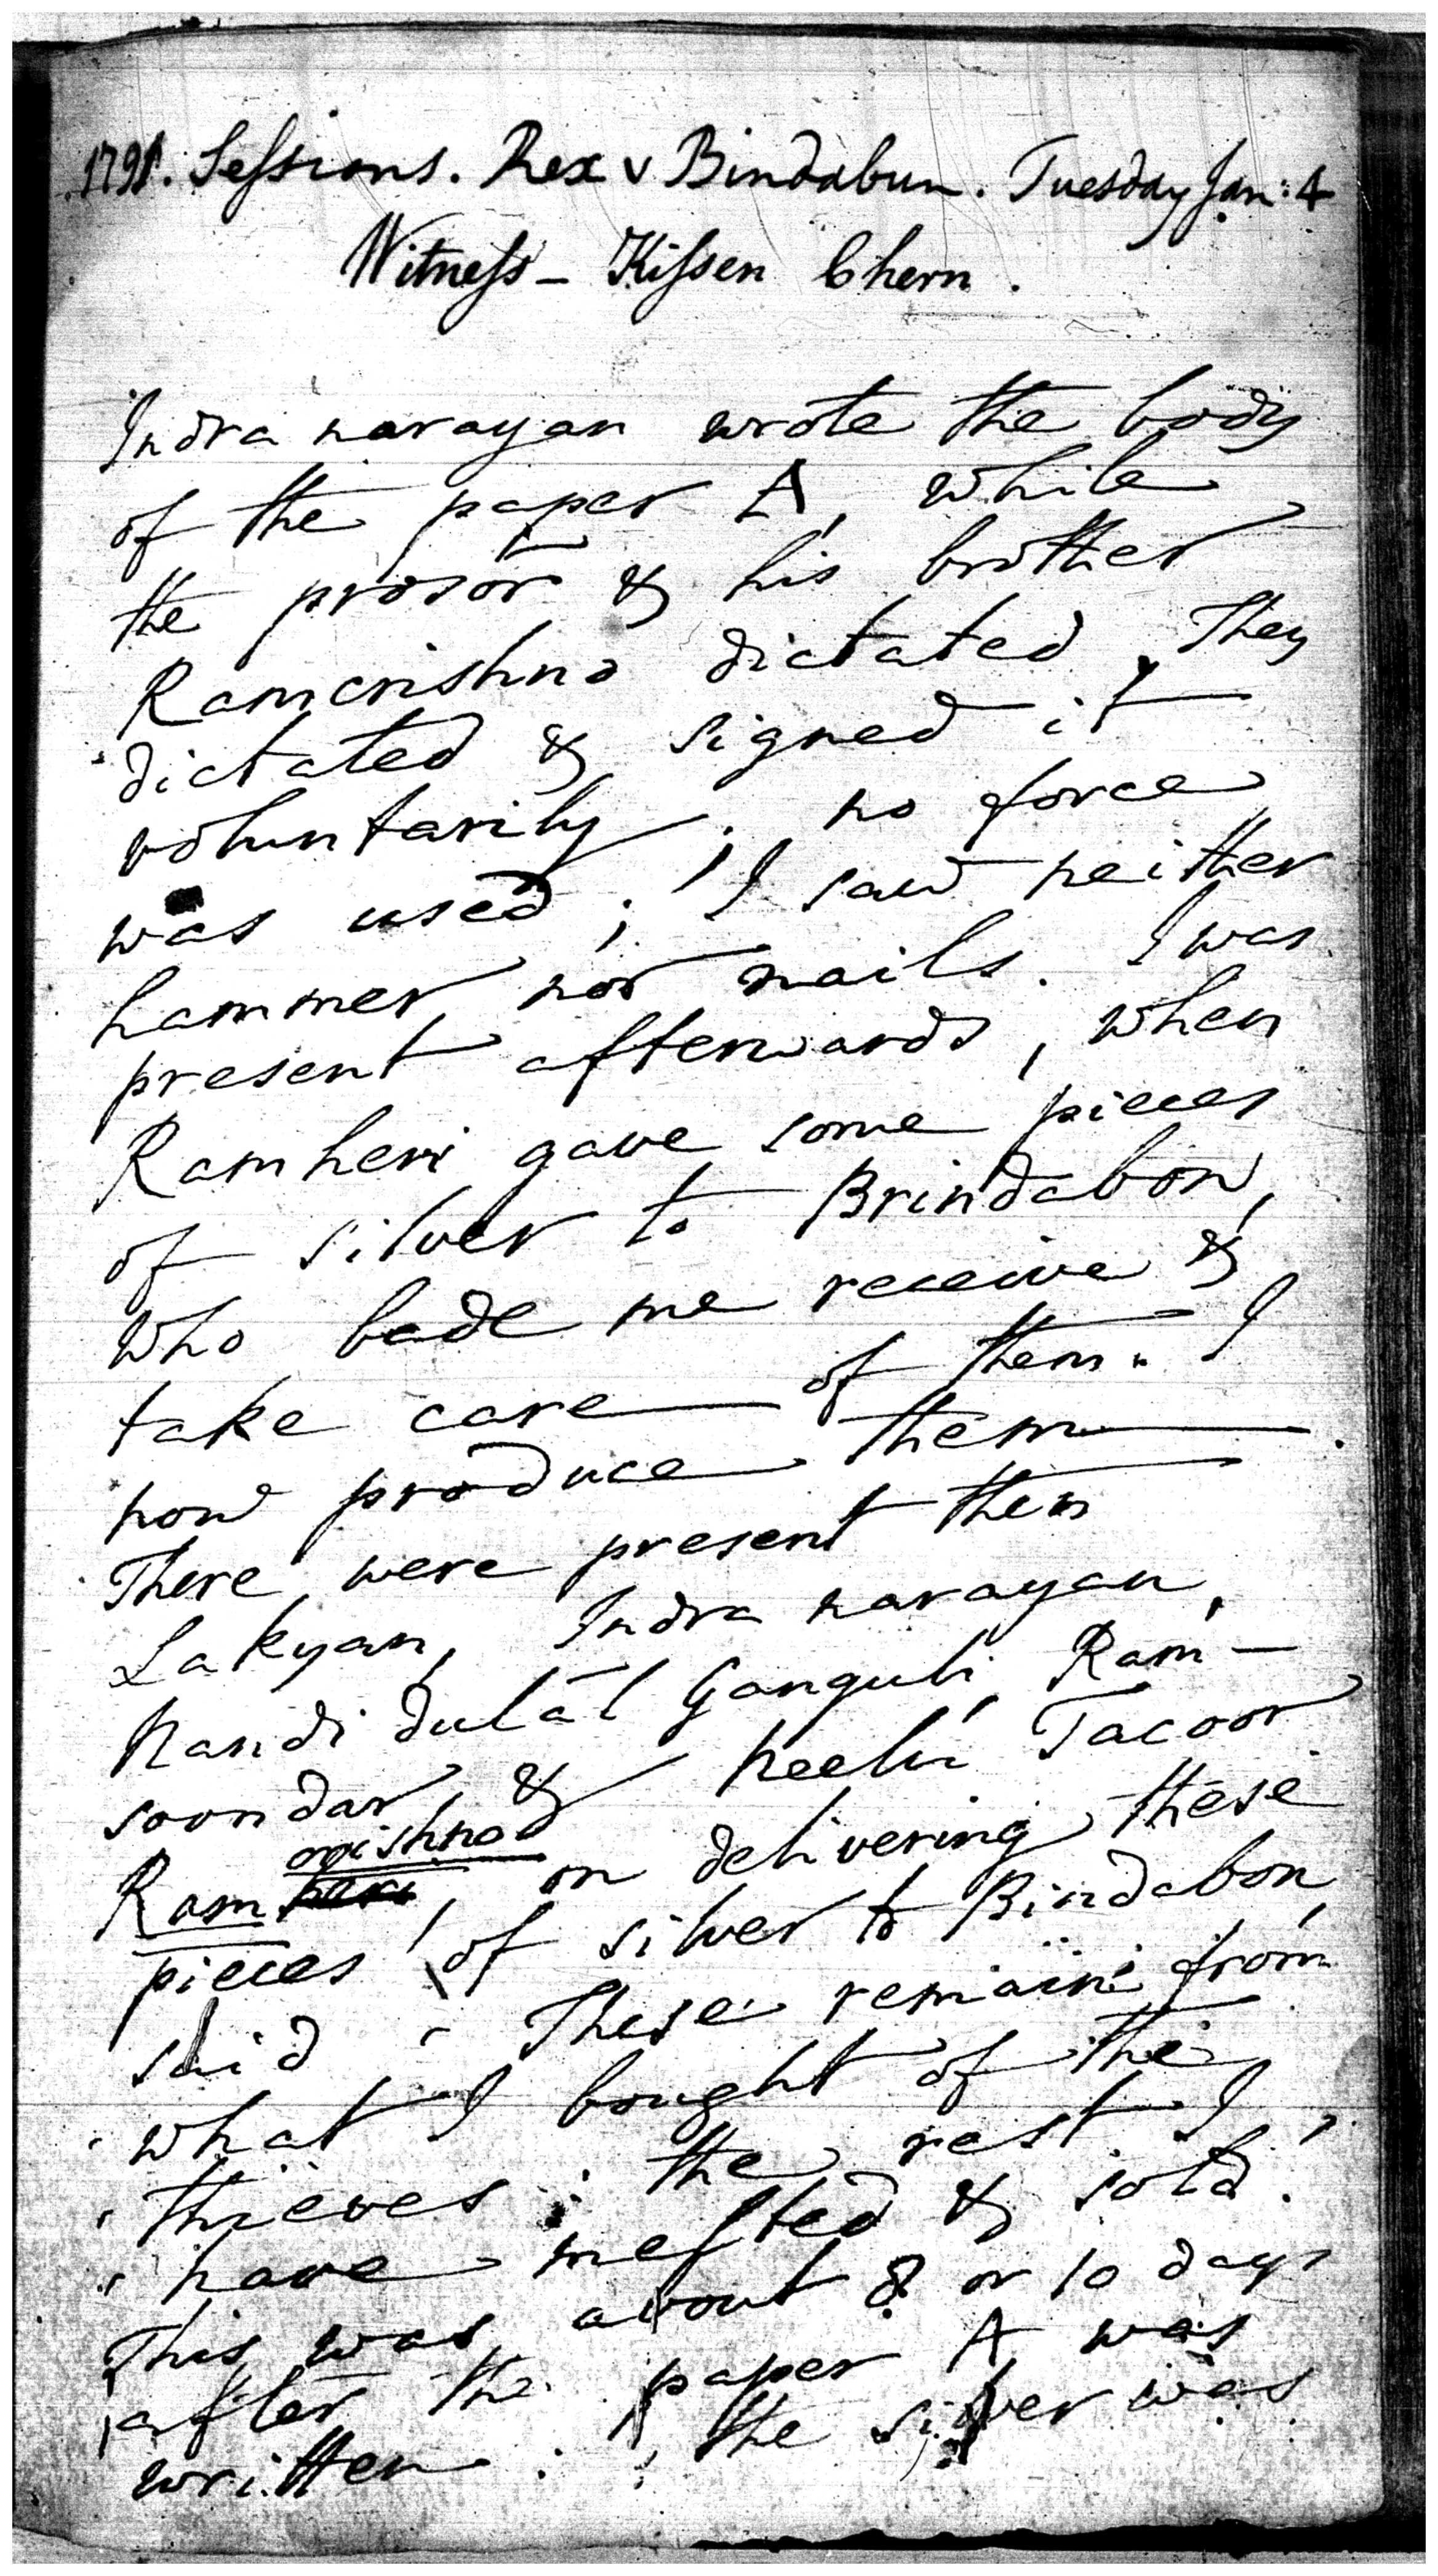 1791. Sessions. Rex v Bindabun. Tuesday Jan: 4
Witness – Kissen Chern.
Indra narayan wrote the body
of the paper A, while
the prosor & his brother
Ramcrishno dictated. They
dictated & signed it
voluntarily; no force
was used; I saw neither
hammer nor nails. I was
present afterwards, when
Ramheri gave some pieces
of silver to Brindabon,
who bade me receive &
take care of them. I
now produce them.
There were present then
Lakyan, Indra narayan,
Nandi dulál Ganguli, Ram-
soondar, & neelu Tacoor
Ram crishno heri, on delivering these
pieces of silver to Bindabon,
said " These remain from
" what I bought of the
" thieves: the rest I
" have melted & sold."
This was about 8 or 10 days
after the paper A was
written: the silver was